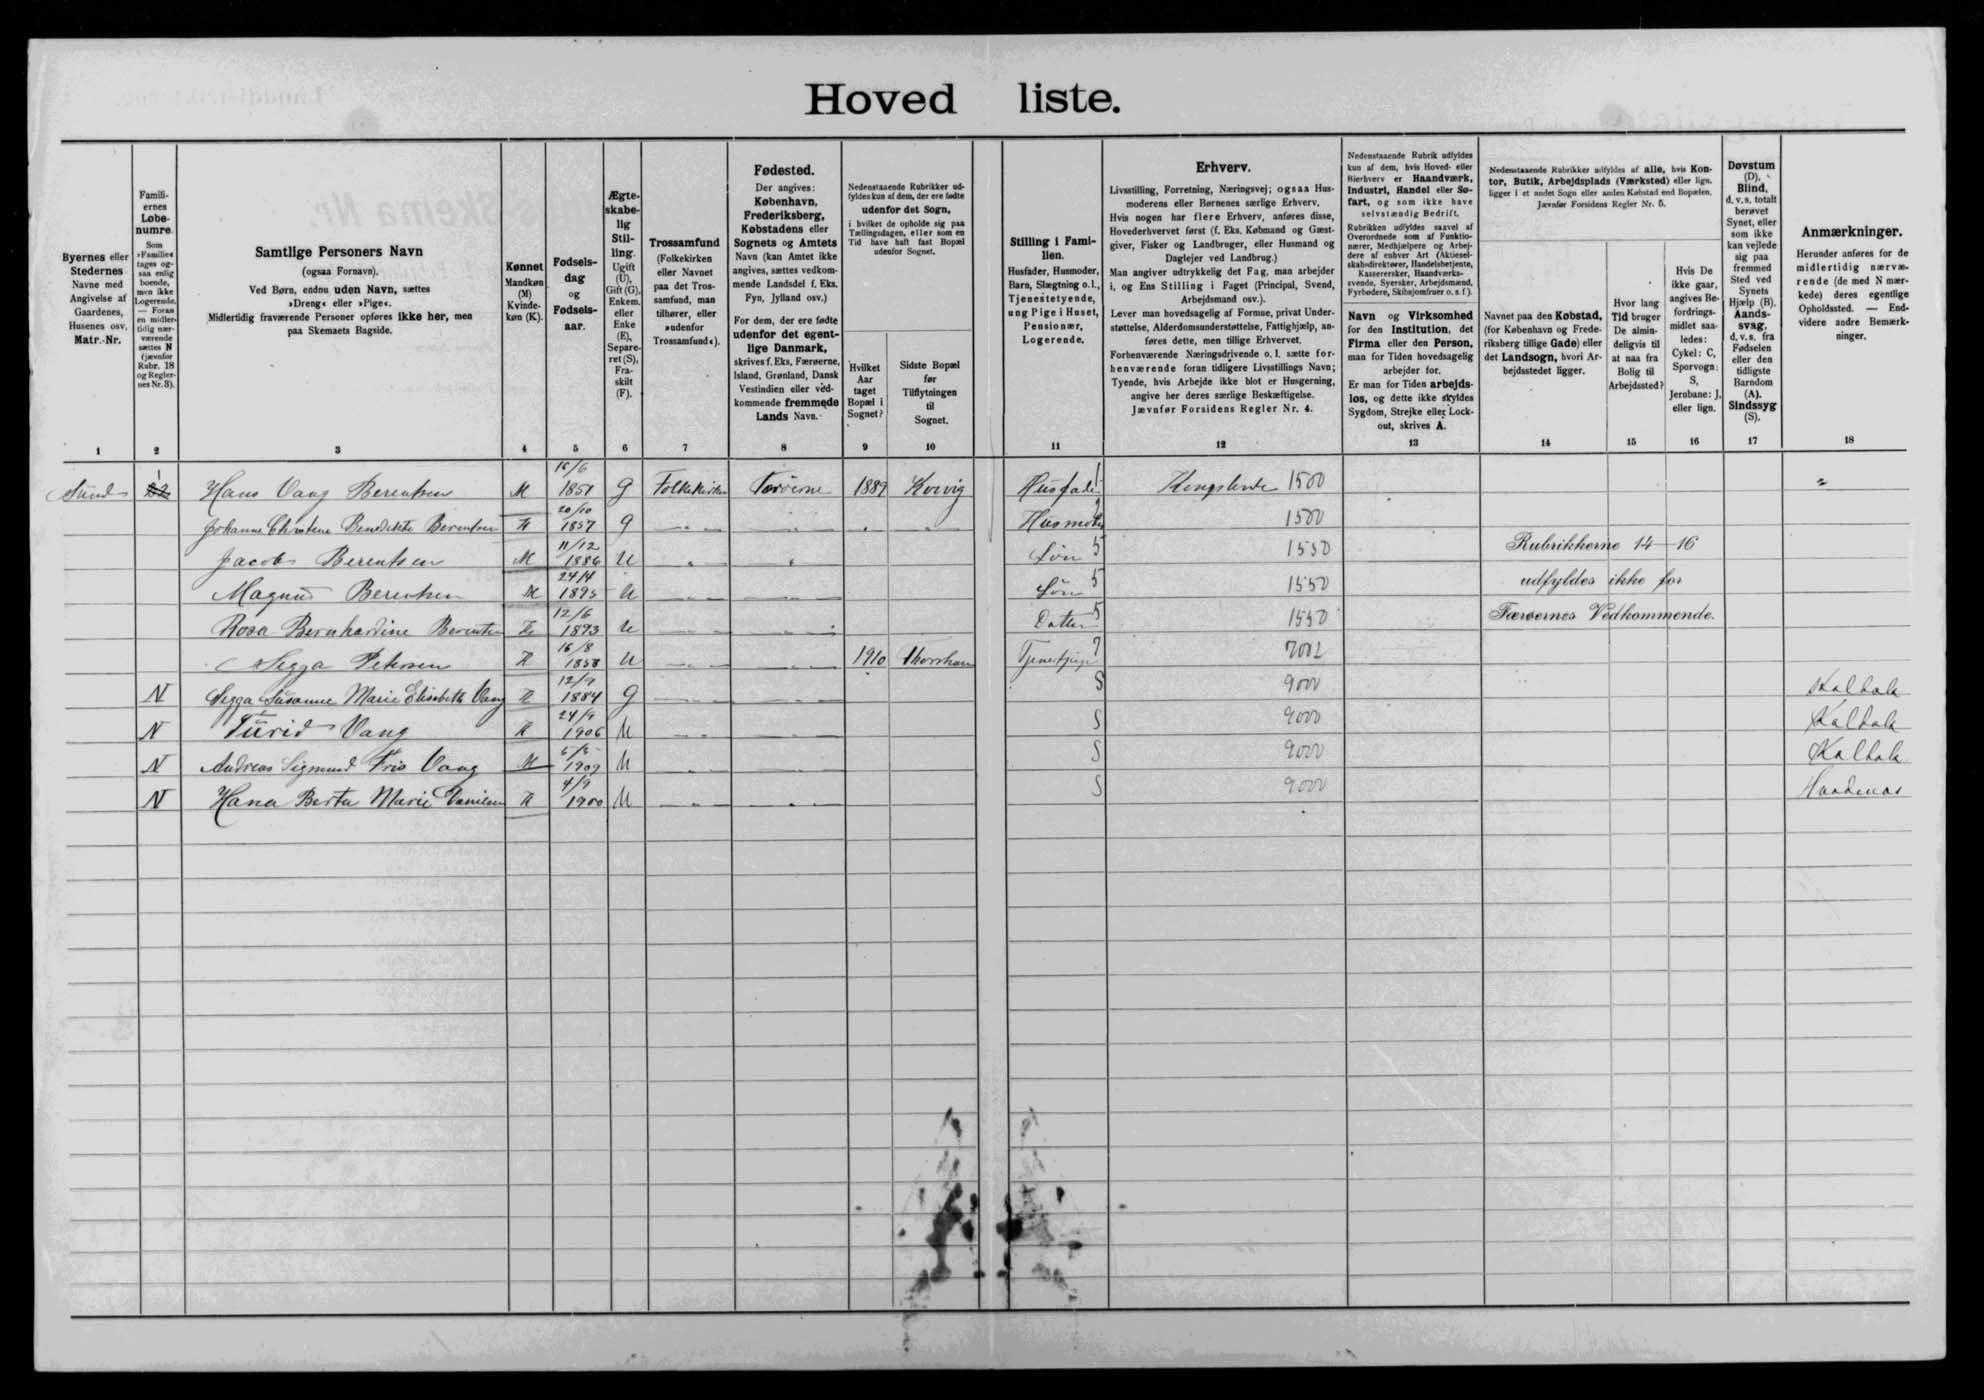 Hoved liste.
Byernes eller
Stedernes
Navne med
Angivelse af
Gaardenes,
Husenes osv.
Matr.-Nr.
Famili-
ernes
Løbe-
numre.
Som
»Familie«
tages og-
saa enlig
boende,
men ikke
Logerende.
— Foran
en midler-
tidig nær-
værende
sættes N
(jævnfør
Rubr. 18
og Regler-
nes Nr. 3).
Samtlige Personers Navn
(ogsaa Fornavn).
Ved Børn, endnu uden Navn, sættes
»Dreng« eller »Pige«.
Midlertidig fraværende Personer opføres ikke her, men
paa Skemaets Bagside.
Kønnet
Mandkøn
(M)
Kvinde-
køn (K).
Fødsels-
dag
og
Fødsels-
aar.
Ægte-
skabe-
lig
Stil-
ling.
Ugift
(U),
Gift (G),
Enkem.
eller
Enke
(E),
Separe-
ret (S),
Fra-
skilt
(F).
Trossamfund
(Folkekirken
eller Navnet
paa det Tros-
samfund, man
tilhører, eller
»udenfor
Trossamfund«).
Fødested.
Der angives:
København,
Frederiksberg,
Købstadens eller
Sognets og Amtets
Navn (kan Amtet ikke
angives, sættes vedkom-
mende Landsdel f. Eks.
Fyn, Jylland osv.)
For dem, der ere fødte
udenfor det egent-
lige Danmark,
skrives f. Eks. Færøerne,
Island, Grønland, Dansk
Vestindien eller ved-
kommende fremmede
Lands Navn.
Nedenstaaende Rubrikker ud-
fyldes kun af dem, der ere fødte
udenfor det Sogn,
i hvilket de opholde sig paa
Tællingsdagen, eller som en
Tid have haft fast Bopæl
udenfor Sognet.
Hvilket
Aar
taget
Bopæl i
Sognet?
Sidste Bopæl
før
Tilflytningen
til
Sognet.
Stilling i Fami-
lien.
Husfader, Husmoder,
Barn, Slægtning o. l.,
Tjenestetyende,
ung Pige i Huset,
Pensionær,
Logerende.
Erhverv.
Livsstilling, Forretning, Næringsvej; ogsaa Hus-
moderens eller Børnenes særlige Erhverv.
Hvis nogen har flere Erhverv, anføres disse,
Hovederhvervet først (f. Eks. Købmand og Gæst-
giver, Fisker og Landbruger, eller Husmand og
Daglejer ved Landbrug.)
Man angiver udtrykkelig det Fag, man arbejder
i, og Ens Stilling i Faget (Principal, Svend,
Arbejdsmand osv.).
Lever man hovedsagelig af Formue, privat Under-
støttelse, Alderdomsunderstøttelse, Fattighjælp, an-
føres dette, men tillige Erhvervet.
Forhenværende Næringsdrivende o. l. sætte for-
henværende foran tidligere Livsstillings Navn;
Tyende, hvis Arbejde ikke blot er Husgerning,
angive her deres særlige Beskæftigelse.
Jævnfør Forsidens Regler Nr. 4.
Nedenstaaende Rubrik udfyldes
kun af dem, hvis Hoved- eller
Bierhverv er Haandværk,
Industri, Handel eller Sø-
fart, og som ikke have
selvstændig Bedrift.
Rubrikken udfyldes saavel af
Overordnede som af Funktio-
nærer, Medhjælpere og Arbej-
dere af enhver Art (Aktiesel-
skabsdirektører, Handelsbetjente,
Kasserersker, Haandværks-
svende, Syersker, Arbejdsmænd,
Fyrbødere, Skibsjomfruer o. s. f.).
Navn og Virksomhed
for den Institution, det
Firma eller den Person,
man for Tiden hovedsagelig
arbejder for.
Er man for Tiden arbejds-
løs, og dette ikke skyldes
Sygdom, Strejke eller Lock-
out, skrives A.
Nedenstaaende Rubrikker udfyldes af alle, hvis Kon-
tor, Butik, Arbejdsplads (Værksted) eller lign.
ligger i et andet Sogn eller anden Købstad end Bopælen.
Jævnfør Forsidens Regler Nr. 5.
Navnet paa den Købstad,
(for København og Frede-
riksberg tillige Gade) eller
det Landsogn, hvori Ar-
bejdsstedet ligger.
Hvor lang
Tid bruger
De almin-
deligvis til
at naa fra
Bolig til
Arbejdssted?
Hvis De
ikke gaar,
angives Be-
fordrings-
midlet saa-
ledes:
Cykel: C,
Sporvogn:
S,
Jernbane: J,
eller lign.
Døvstum
(D),
Blind,
d. v. s. totalt
berøvet
Synet, eller
som ikke
kan vejlede
sig paa
fremmed
Sted ved
Synets
Hjælp (B).
Aands-
svag,
d. v. s. fra
Fødselen
eller den
tidligste
Barndom
(A).
Sindssyg
(S).
Anmærkninger.
Herunder anføres for de
midlertidig nærvæ-
rende (de med N mær-
kede) deres egentlige
Opholdssted. — End-
videre andre Bemærk-
ninger.
1 2 3 4 5 6 7 8 9 10 11 12 13 14 15 16 17 18
Sund 1 Hans Vang Berentsen M 1851 G Folkekirken Færöerne 1889 Husfader 1 Kongsbonde 1500
Johanne Christine Benedikte Berentsen K 20/10 1857 G Husmoder 1500
Jacob Berentsen M 11/12 1886 U Sön 5 1550 Rubrikkerne 14-16
Magnus Berentsen M 24/4 1895 U Sön 5 1550 udfyldes ikke for
Rosa Bernhardine Berentsen K 12/6 1893 U Datter 5 1550 Færøernes Vedkommende.
Segga Petersen K 16/8 1858 U 1910 Thorshavn Tjenestpige 7 7002
N Segga Susanne Marie Elisabeth Vang K 1884 G S 9000 Kalbak
N Turid Vang K 1906 U S 9000 Kalbak
N Andreas Sigmund Fris Vang M 5/5 1909 U S 9000 Kalbak
N Hana Berta Marie K 4/9 1900 U S 9000